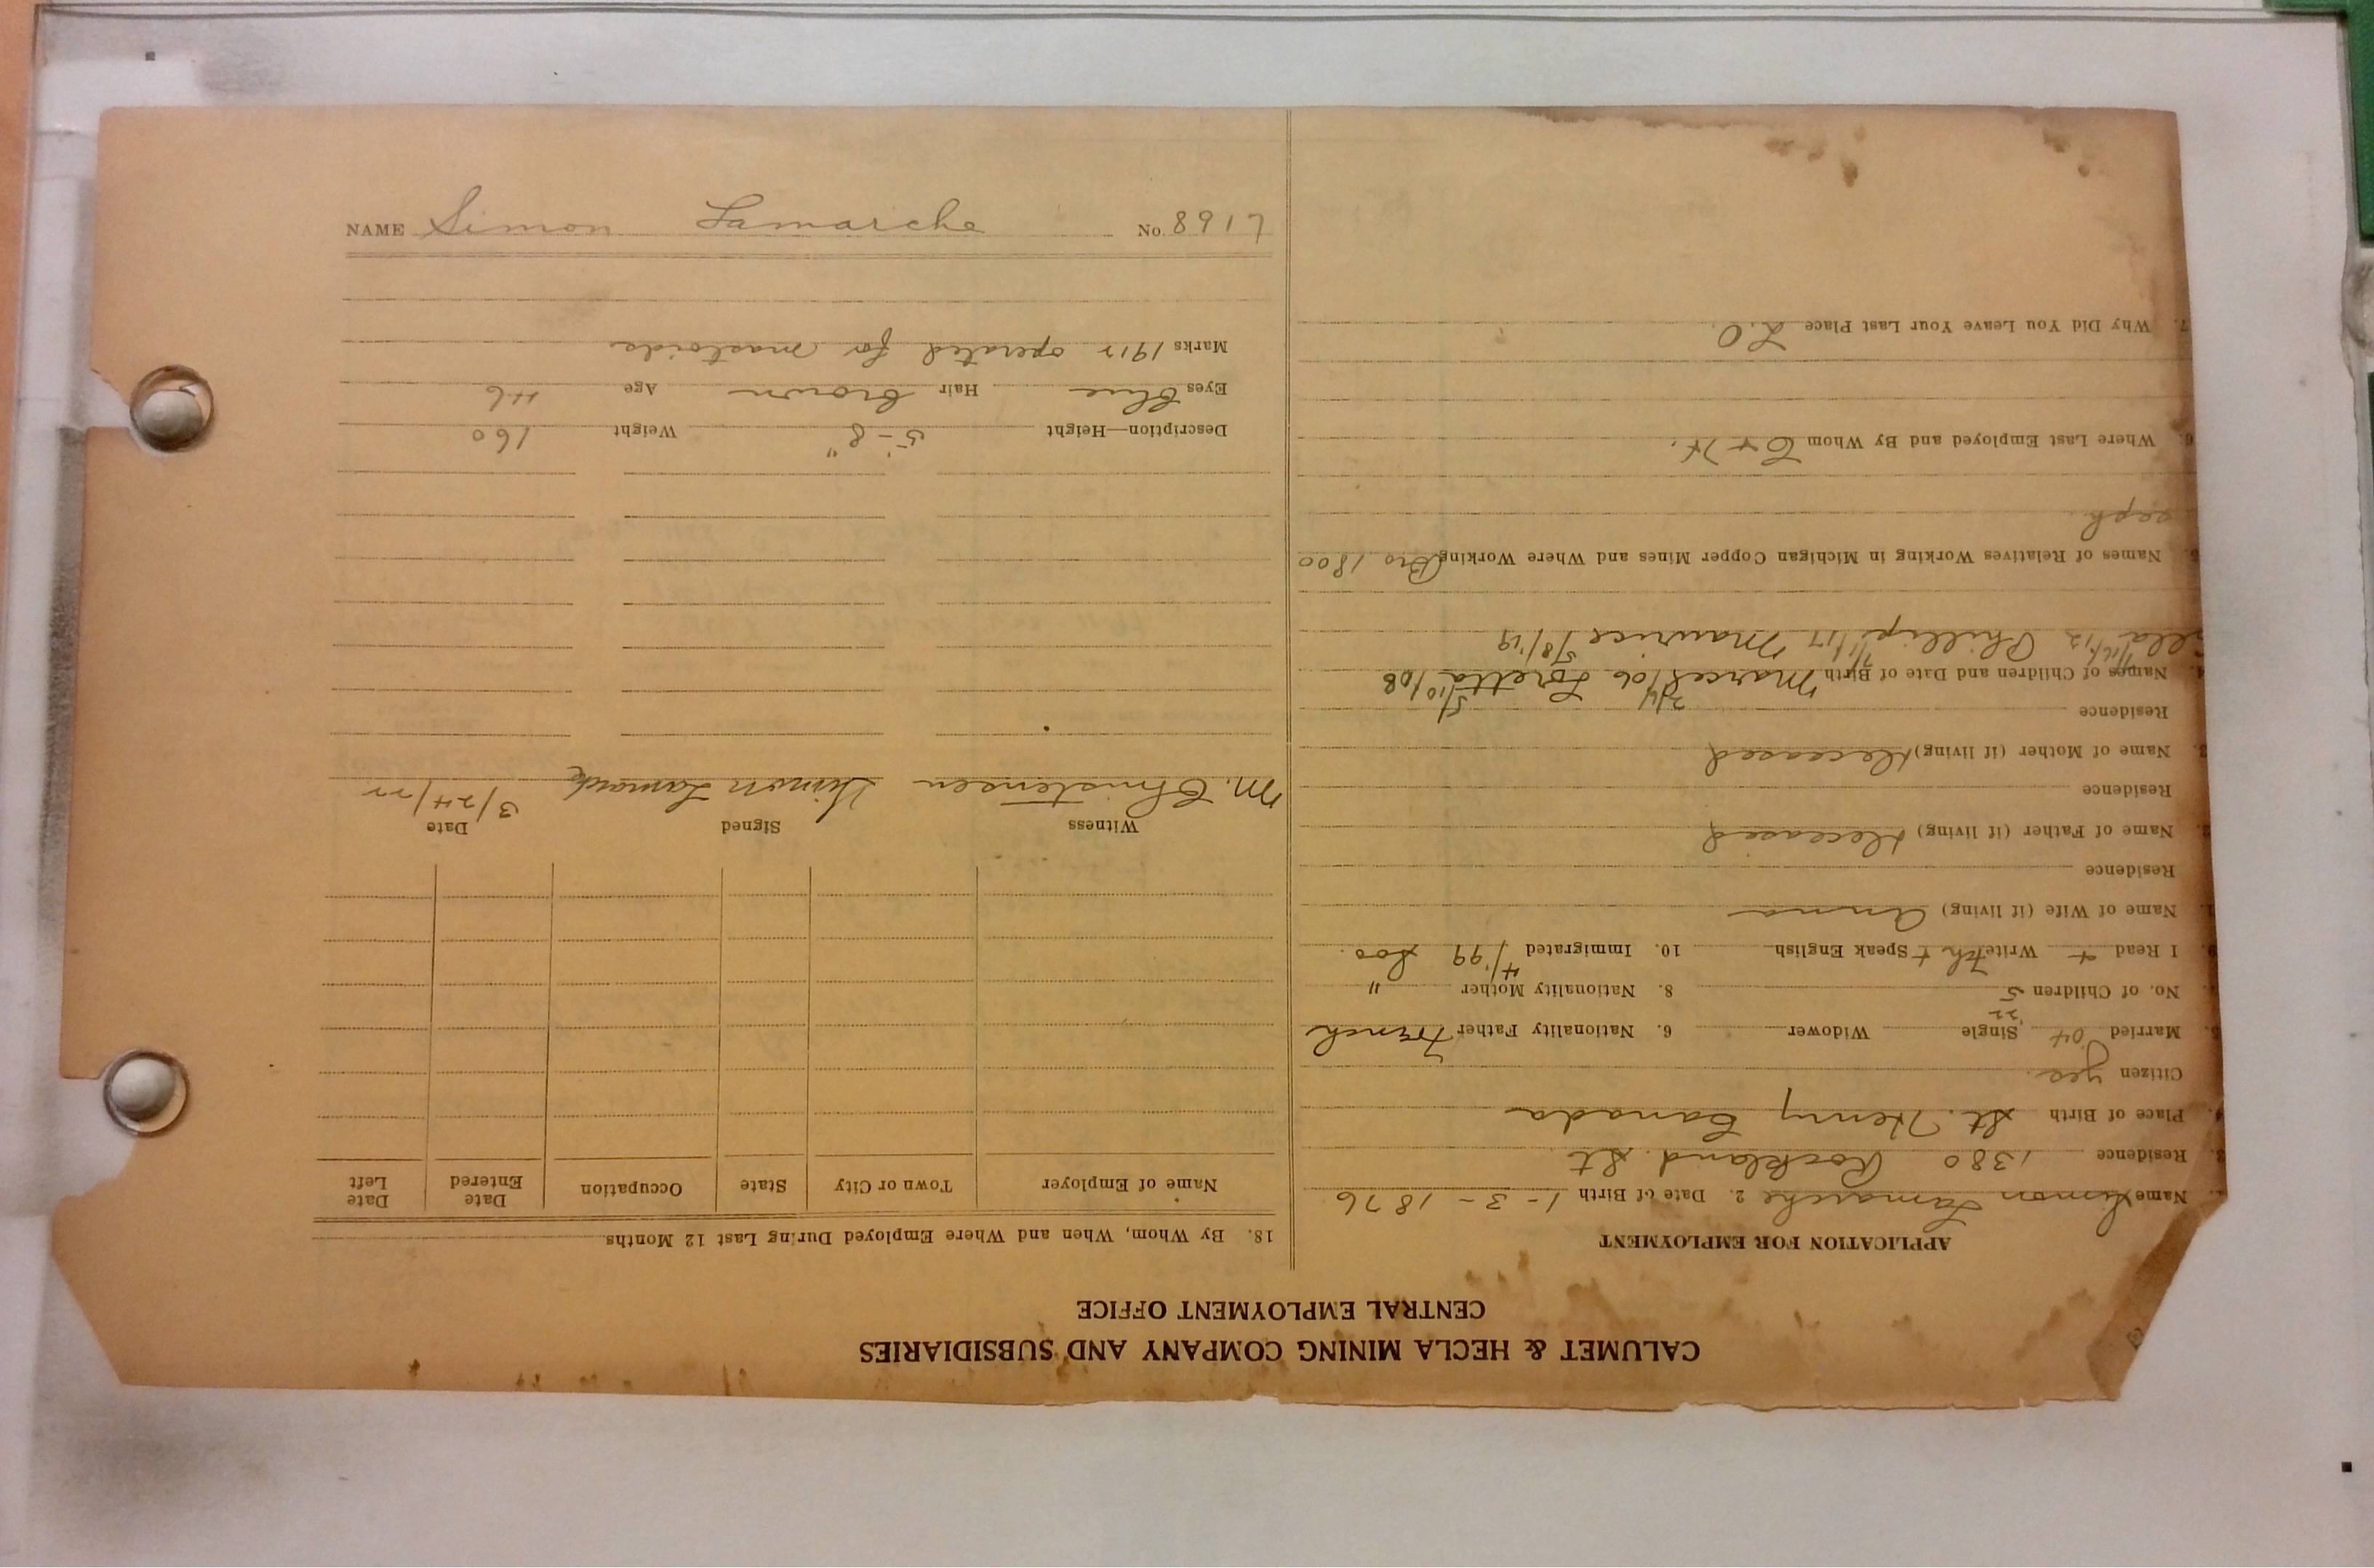 CALUMET & HECLA MINING COMPANY AND SUBSIDIARIES
CENTRAL EMPLOYMENT OFFICE
APPLICATION FOR EMPLOYMENT
Name Simon Lamarche 2. Date of Birth 1-3-1876
Residence 1380 Rockland St
Place of Birth St. Henry Canada
Citizen yes
Married '04 Single Widower 6. Nationality Father French
No. of Children 5 8. Nationality Mother "
I Read + Write Fch + Speak English 10. Immigrated 4/99 Soo.
Name of Wife (if living) Anna
Residence
Name of Father (if living) Deceased
Residence
Name of Mother (if living) Deceased
Residence
Names of Children and Date of Birth Marcel 3/4/06 Loretta 5/10/08
Phillip 7/1/17 Maurice 5/8/19
Names of Relatives Working in Michigan Copper Mines and Where Working Bro 1800
Where Last Employed and By Whom C + H.
7. Why Did You Leave Your Last Place L.O.
18. By Whom, When and Where Employed During Last 12 Months
Name of Employer Town or City State Occupation Date Entered Date Left
Witness Signed Date
M. Christensen Simon Lamarche 3/24/22
Description—Height 5'-8" Weight 160
Eyes Blue Hair Brown Age 46
Marks 1912 operated for mastoids
NAME Simon Lamarche No. 8917